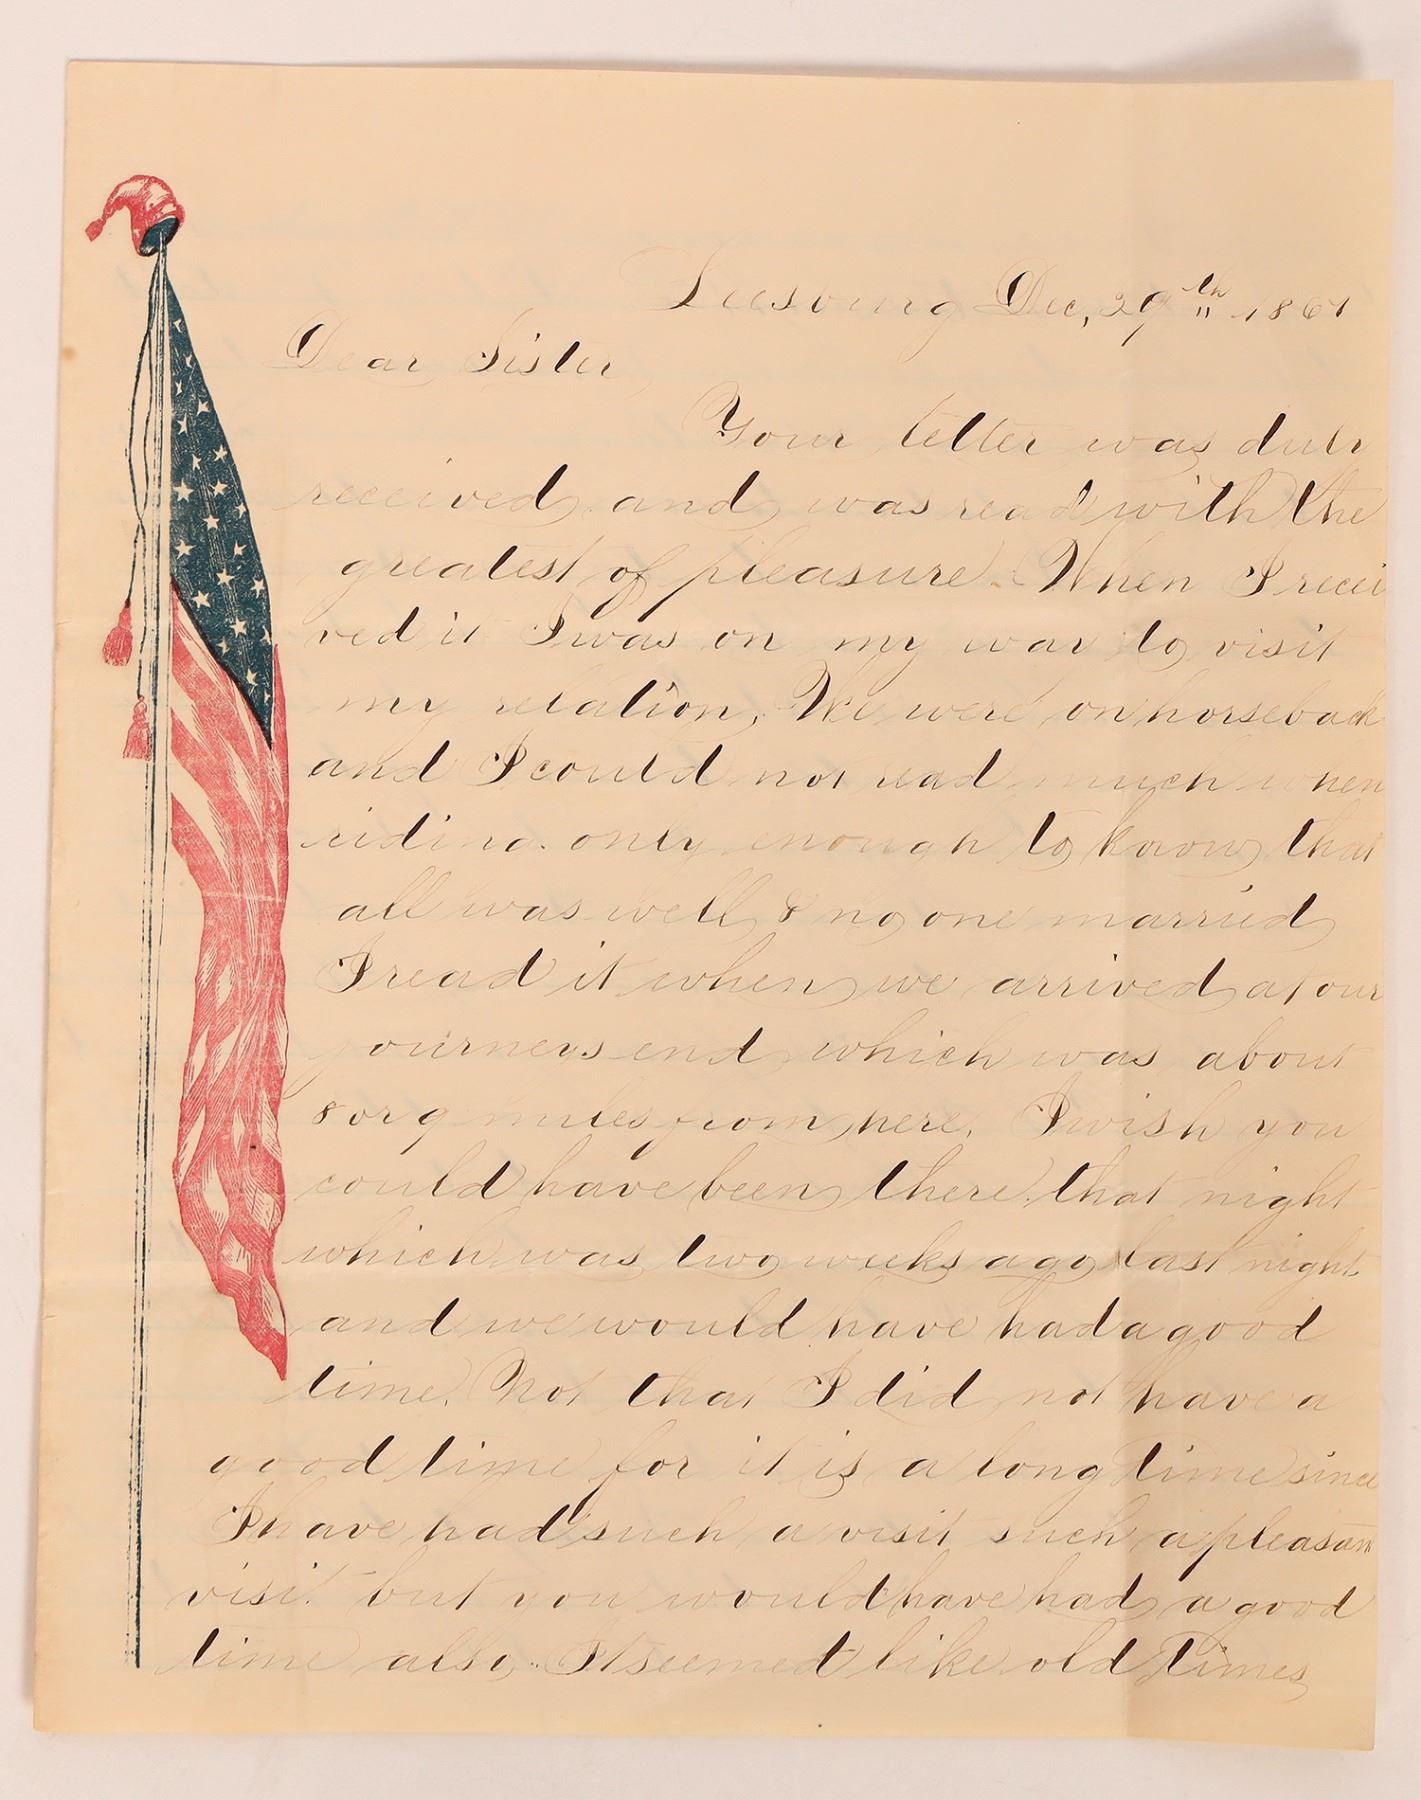 Leesburg Dec, 29th 1861
Dear Sister
Your letter was duly
received and was read with the
greatest of pleasure. When I recei
ved it I was on my way to visit
my relation, We were on horseback
and I could not read much when
riding. only enough to know that
all was well & no one married
I read it when we arrived at our
journeys end which was about
8 or 9 miles from here. I wish you
could have been there that night
which was two weeks ago last night
and we would have had a good
time. Not that I did not have a
good time for it is a long time since
I have had such a visit such a pleasant
visit but you would have had a good
time also. It seemed like old times